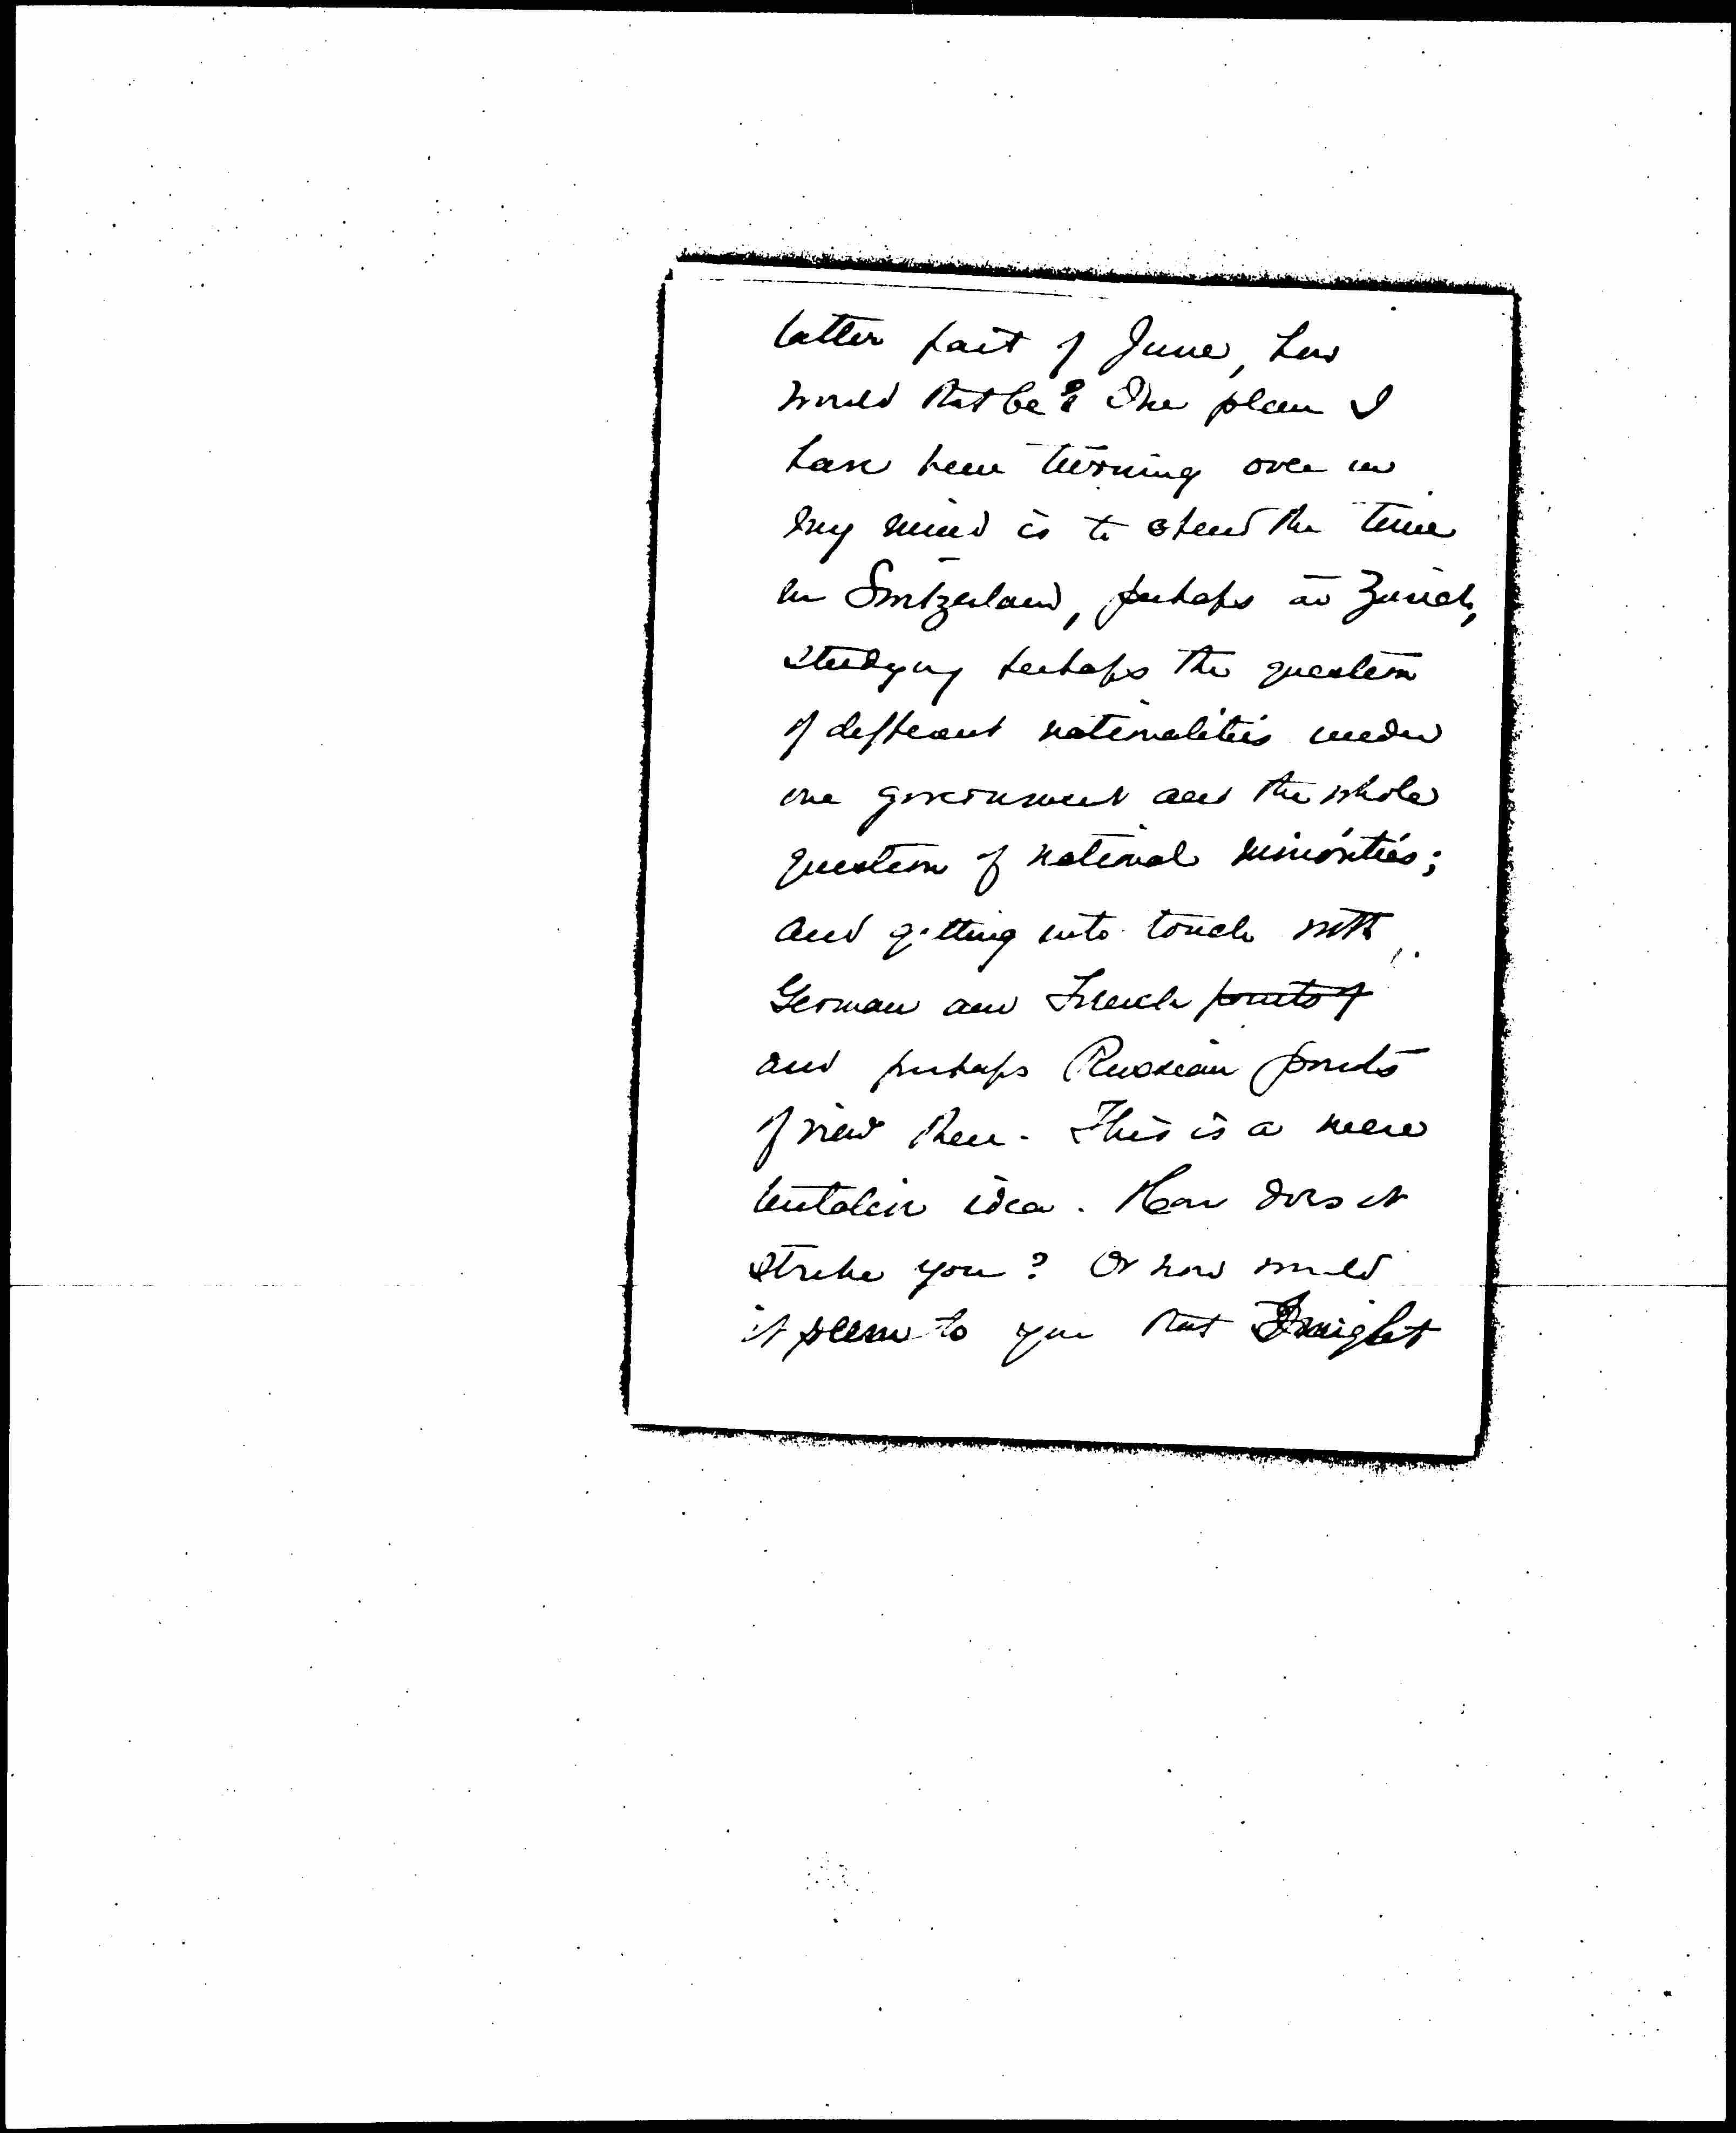 latter part of June, how
would that be? The plan I
have been turning over in
my mind is to spend the time
in Switzerland, perhaps at Zurich,
studying perhaps the question
of different nationalities under
one government and the whole
question of national minorities;
and getting into touch with
German and French points of
and perhaps Russian points
of view there. This is a mere
tentative idea. How does it
strike you? Or how would
it seem to you that I might